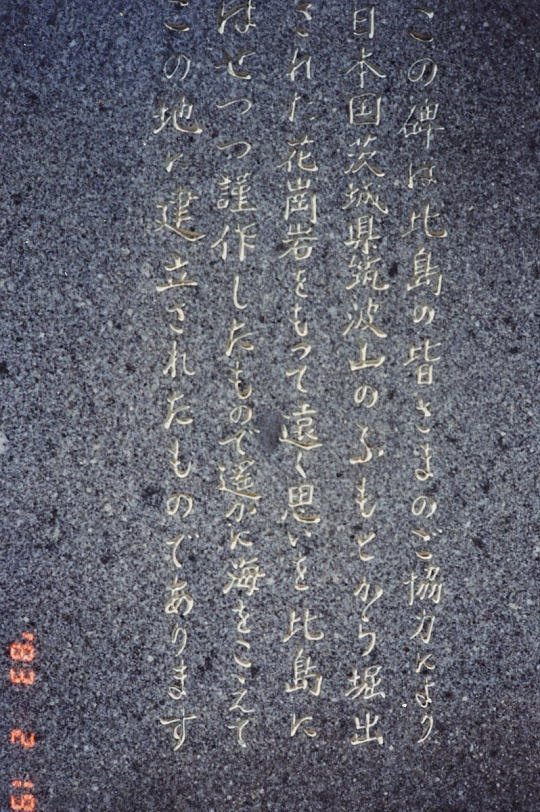 この碑は比島の皆さまのご協力により
日本国茨城県筑波山のふもとから堀出
された花崗岩をもって遠く思いを比島に
はせつつ謹作したもので遥かに海をこえて
この地に建立されたものであります
'83 2 19